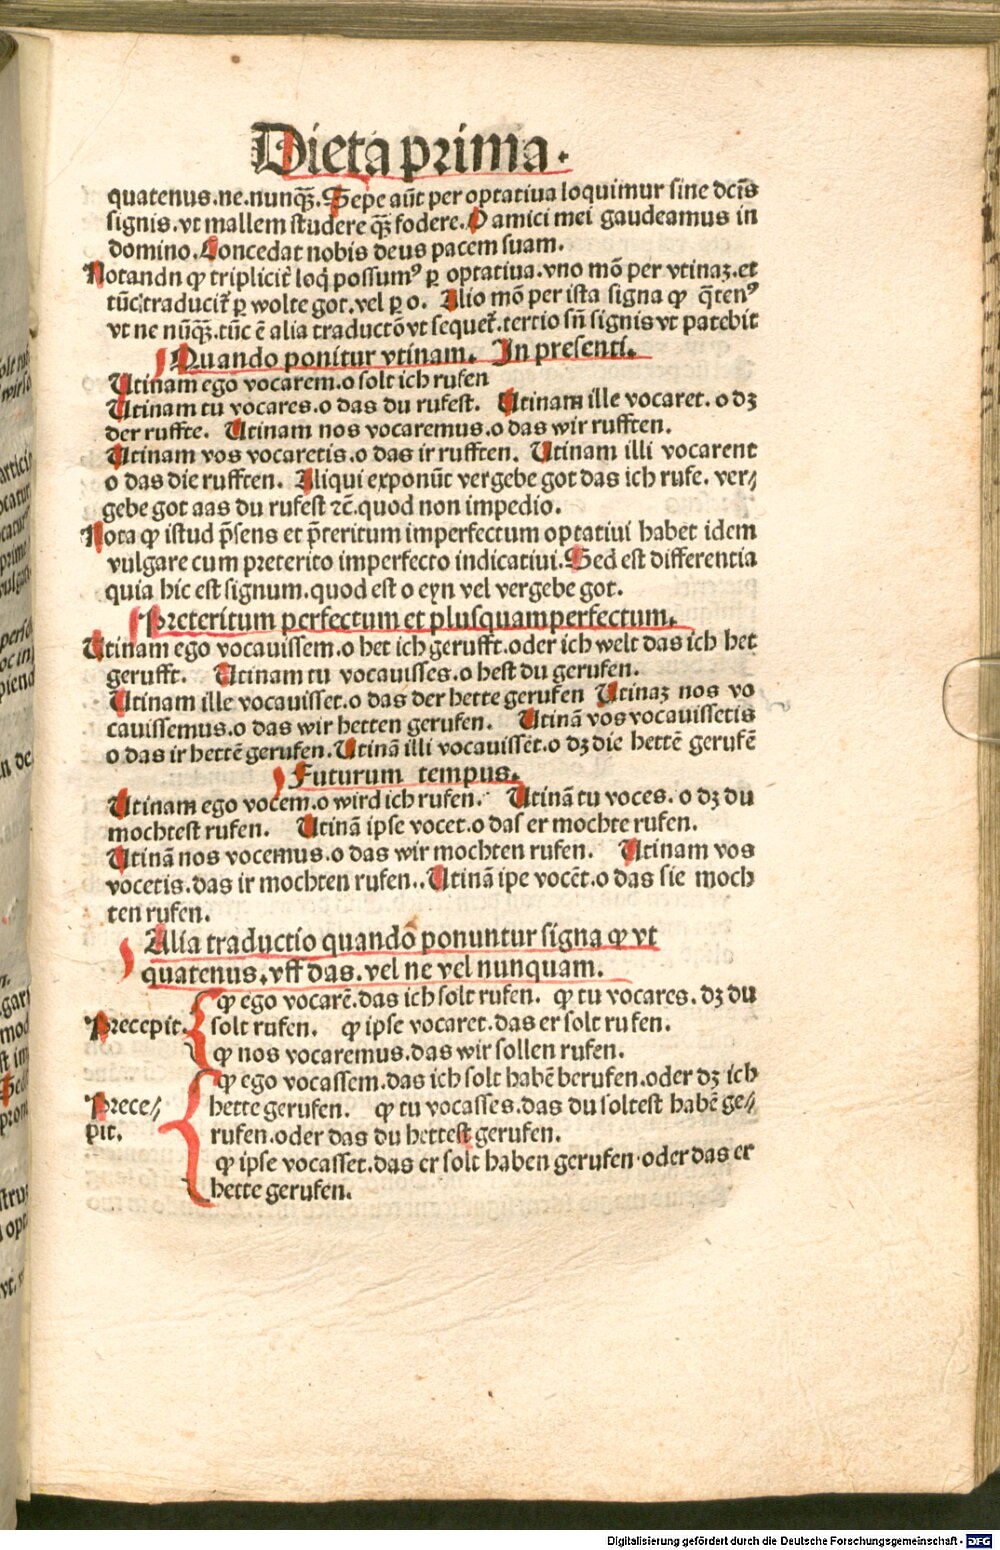 Dieta prima.
quatenus.ne.nunqꝫ̃.Sepe aũt per optatiua loquimur sine dcis̃
signis.vt mallem studere qꝫ̃ fodere.O amici mei gaudeamus in
domino.Concedat nobis deus pacem suam.
Notandn ꝙ triplicit̃ loq̃ possumꝰ ꝑ optatiua.vno mõ per vtinaꝫ.et
tũc traducit̃ ꝑ wolte got.vel ꝑ o. Alio mõ per ista signa ꝙ q̃tenꝰ
vt ne nũqꝫ̃.tũc ẽ alia traductõ vt sequet̃.tertio sñ signis vt patebit
Quando ponitur vtinam. In presenti.
Utinam ego vocarem.o solt ich rufen
Utinam tu vocares.o das du rufest. Utinam ille vocaret. o dꝫ
der ruffte. Utinam nos vocaremus.o das wir rufften.
Utinam vos vocaretis.o das ir rufften. Utinam illi vocarent
o das die rufften. Aliqui exponũt vergebe got das ich rufe. ver⸗
gebe got aas du rufest ⁊c̃.quod non impedio.
Nota ꝙ istud p̃sens et p̃teritum imperfectum optatiui habet idem
vulgare cum preterito imperfecto indicatiui.Sed est differentia
quia hic est signum.quod est o eyn vel vergebe got.
Preteritum perfectum et plusquamperfectum.
Utinam ego vocauissem.o het ich gerufft.oder ich welt das ich het
gerufft. Utinam tu vocauisses.o hest du gerufen.
Utinam ille vocauisset.o das der hette gerufen Utinaꝫ nos vo
cauissemus.o das wir hetten gerufen. Utinã vos vocauissetis
o das ir hettẽ gerufen.Utinã illi vocauissẽt.o dꝫ die hettẽ gerufẽ
Futurum tempus.
Utinam ego vocem.o wird ich rufen. Utinã tu voces. o dꝫ du
mochtest rufen. Utinã ipse vocet.o das er mochte rufen.
Utinã nos vocemus.o das wir mochten rufen. Utinam vos
vocetis.das ir mochten rufen..Utinã ipe vocẽt.o das sie moch
ten rufen.
Alia traductio quando ponuntur signa ꝙ vt
quatenus.vff das.vel ne vel nunquam.
ꝙ ego vocarẽ.das ich solt rufen. ꝙ tu vocares. dꝫ du
Precepit. solt rufen. ꝙ ipse vocaret.das er solt rufen.
ꝙ nos vocaremus.das wir sollen rufen.
ꝙ ego vocassem.das ich solt habẽ berufen.oder dꝫ ich
Prece⸗ hette gerufen. ꝙ tu vocasses.das du soltest habẽ ge⸗
pit. rufen.oder das du hettest gerufen.
ꝙ ipse vocasset.das er solt haben gerufen.oder das er
hette gerufen.
Digitalisierung gefördert durch die Deutsche Forschungsgemeinschaft - DFG